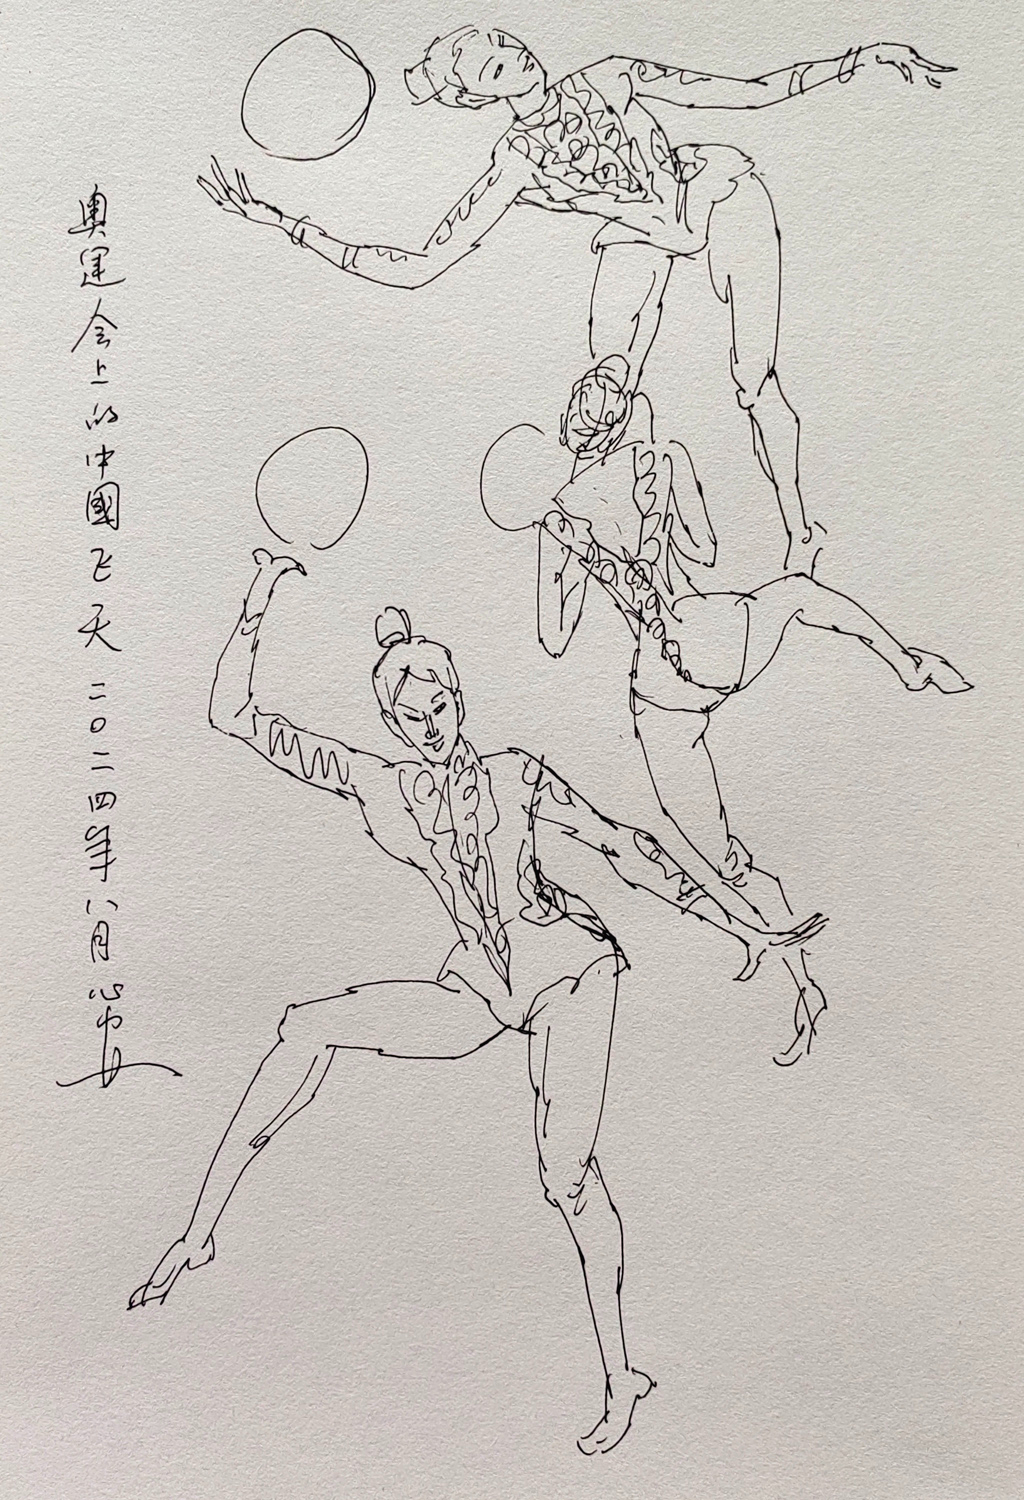 奥運会上的中國飞天 二〇二四年八月